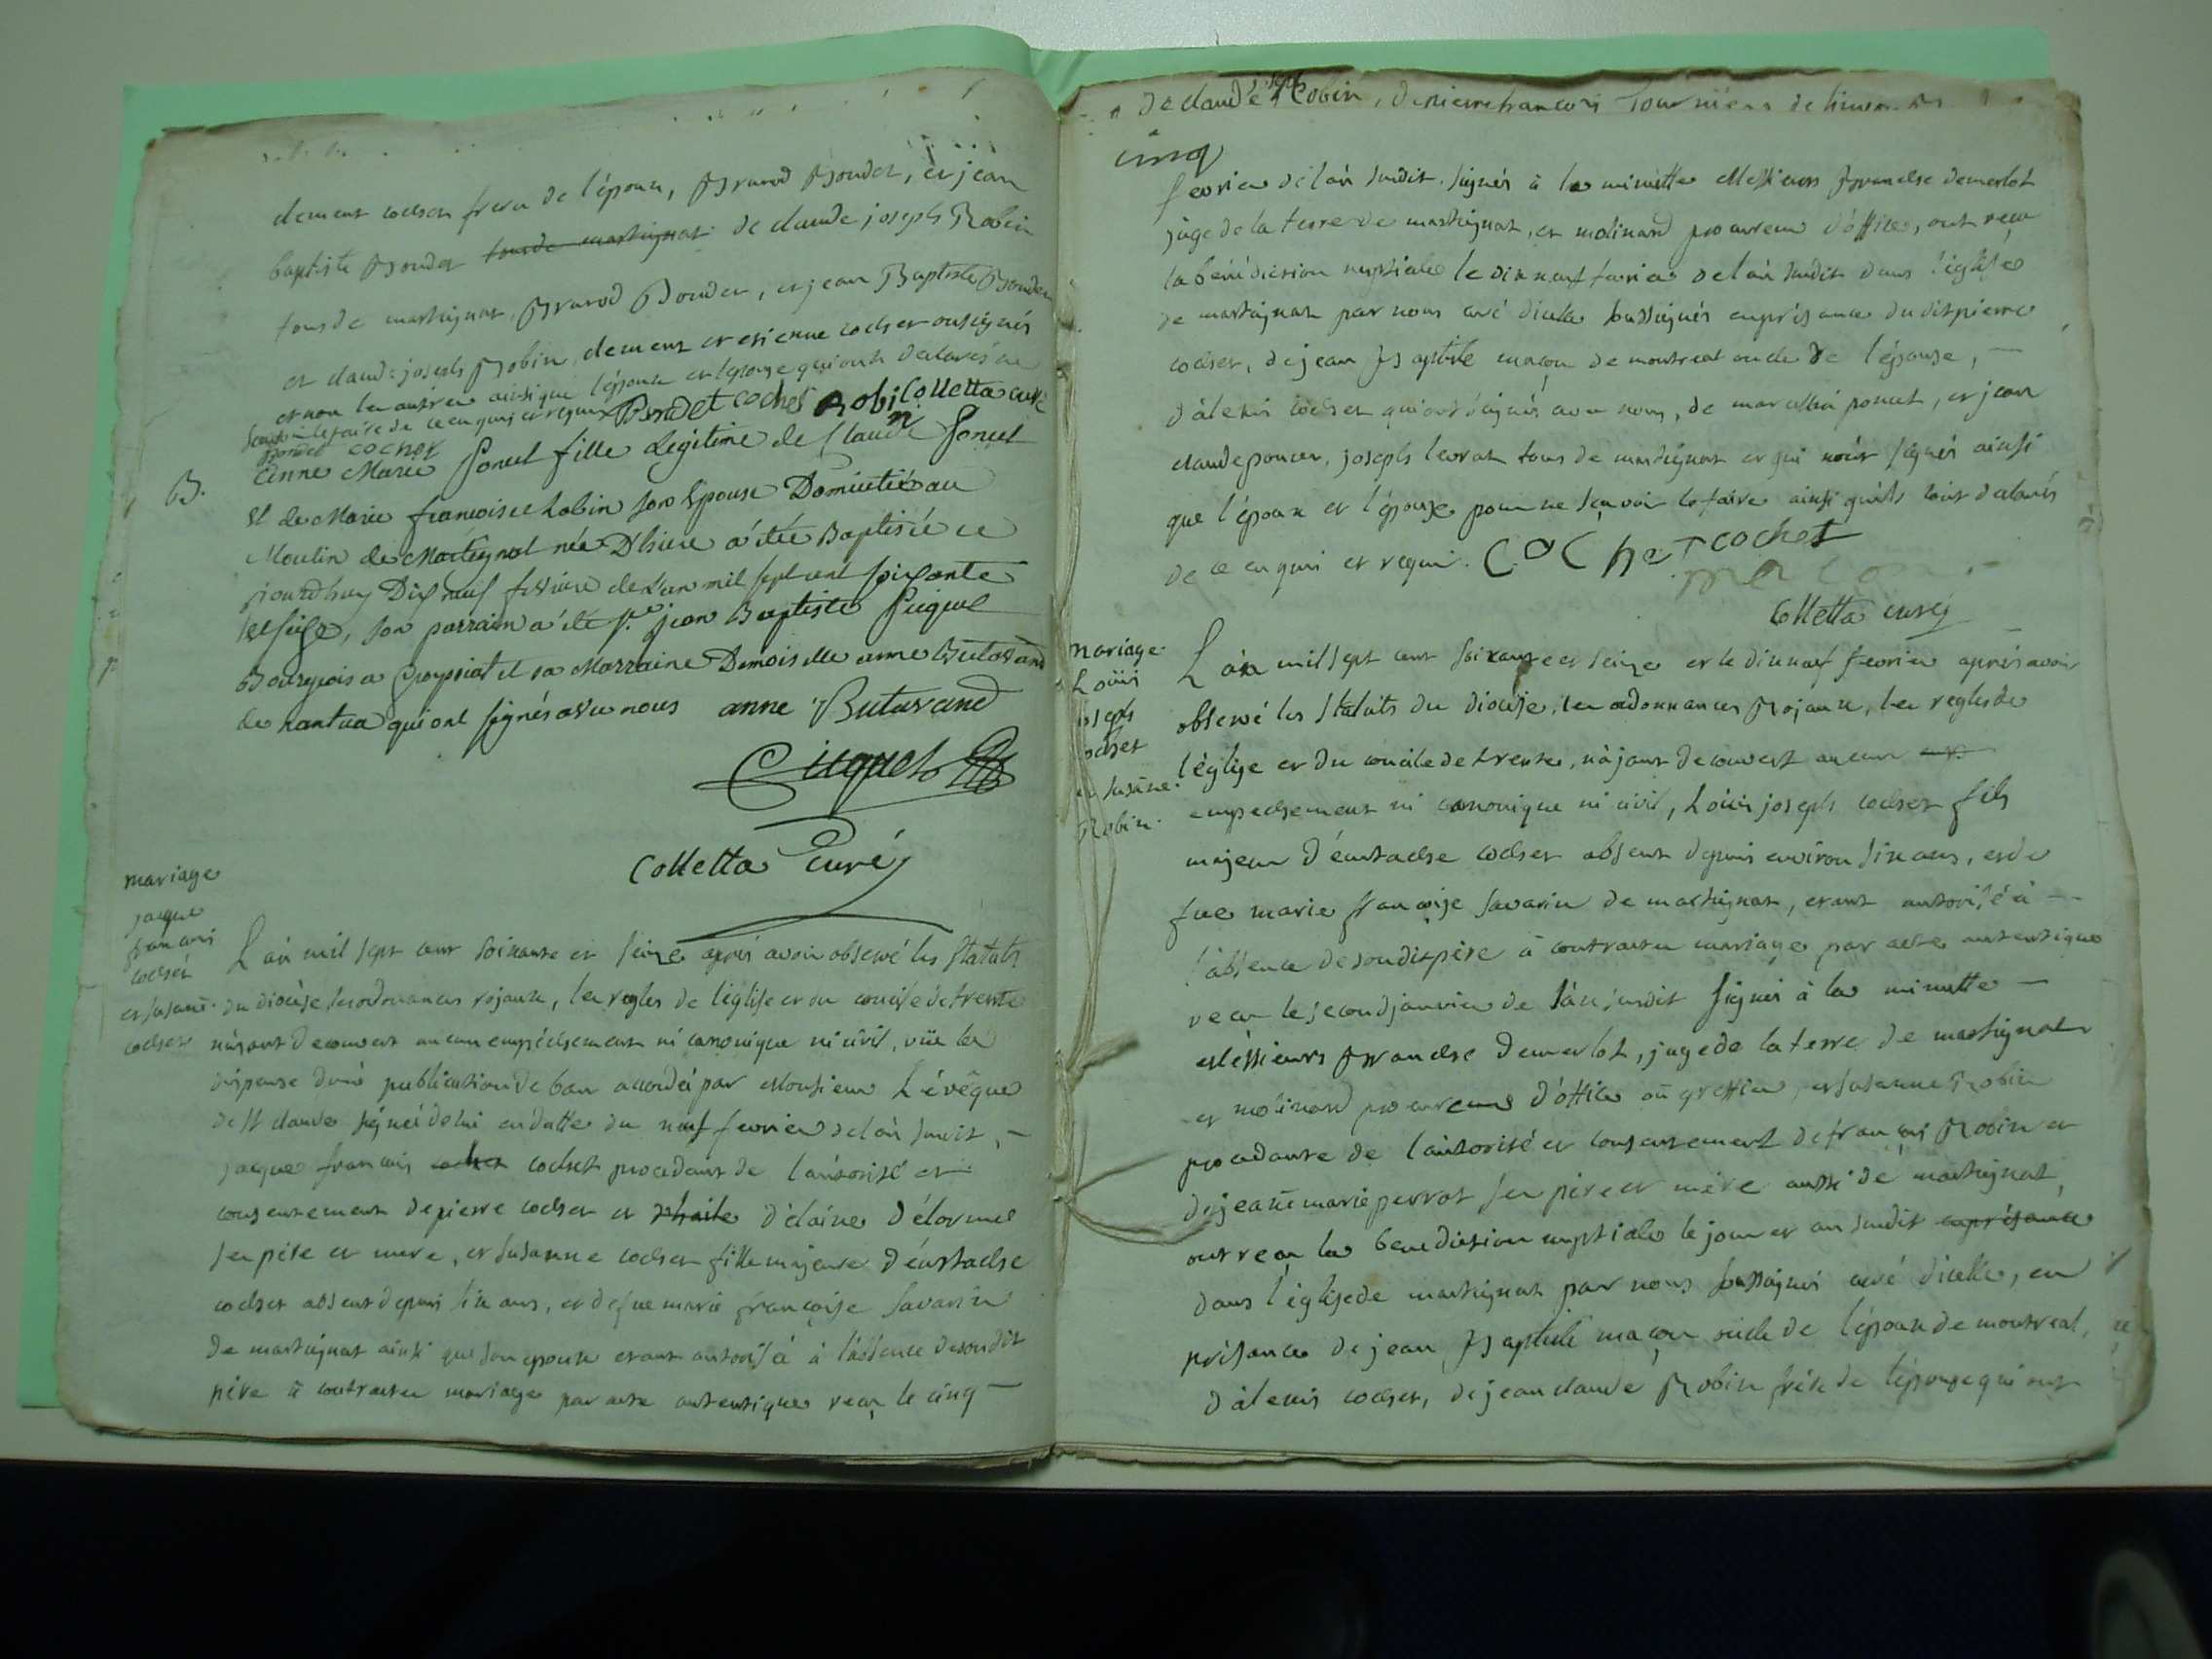 clement cochet frere de l'époux, Brunod Bondet, et jean
baptiste Bondet tous de martignat de claude joseph Robin
tous de martignat, Brunod Bondet, et jean Baptiste Bondet
et claude joseph Robin, clement et etienne cochet ont signés
et non les autres ainsi que l'époux et l'épouse qui ont declarés ne
sçavoir le faire de ce enquis et requis Bondet cochet Robin Colletta curé
Bondet cochet
B.
Anne Marie Poncet fille Legitime de Claude Poncet
et de Marie francoise Robin son Epouse Domiciliés au
Moulin de Martignat née D'hiere a été Baptisée ce
jourdhuy Dix neuf fevrier de L'an mil sept cent soixante
et seize, son parrain a été Sr. jean Baptiste Picquet
Bourgeois a Groyssiat et sa Marraine Demoiselle anne Butavand
de nantua qui ont signés avec nous anne Butavand
Picquet
Colletta Curé
mariage
jaque
francois
cochet
et susane
cochet
L'an mil sept cent soixante et seize après avoir observé les statuts
du diocèse, les ordonnances rojaux, les regles de l'église et du concile de trente
n'ajant decouvert aucun empéchement ni canonique ni civil, vüe la
dispense d'une publication de ban accordée par Monsieur L'évêque
de St claude signée de lui en datte du neuf fevrier de l'an susdit, —
jaque francois cochet cochet procedant de l'autorité et
consentement de pierre cochet et d'élaine délorme
ses père et mere, et susanne cochet fille majeure d'éustache
cochet absent depuis six ans, et de fue marie françoise savarin
de martignat ainsi que son epoux etant autorisée à l'absence desondit
père à contracter mariage par acte autentique reçu le cinq —
de claude joseph Robin, de pierre francois Tournier
cinq
fevrier de l'an susdit signés à la minutte Messieurs Brandse demerlot
juge de la terre de martignat, et molinard procureur d'office, ont reçu
la bénédiction nuptiale le dix neuf fevrier de l'an susdit dans l'église
de martignat par nous curé d'icelle soussignés en présence dudit pierre
cochet, de jean Baptiste maçon de montreal oncle de l'épouse, —
d'alexis cochet qui ont signés avec nous, de marcellin poncet, et jean
claude poncet, joseph levrat tous de martignat et qui n'ont signés ainsi
que l'époux et l'épouse pour ne sçavoir le faire ainsi qu'ils l'ont declarés
de ce enquis et requis. COCHET cochet
maçon
Colletta curé
mariage
Loüis
joseph
cochet
et susane
Robin.
L'an mil sept cent soixante et seize et le dix neuf fevrier après avoir
observé les statuts du diocèse, les ordonnances Rojaux, les regles de
l'église et du concile de trente, n'ajant decouvert aucun
empechement ni canonique ni civil, Loüis joseph cochet fils
majeur d'éustache cochet absent depuis environ six ans, et de
fue marie françoise savarin de martignat, etant autorisé à —
l'absence desondit père à contracter mariage par acte autentique
reçu le second janvier de l'an susdit signés à la minutte —
Messieurs Brandse demerlot, juge de la terre de martignat
et molinard procureur d'office ou greffier, et susanne Robin
procedante de l'autorité et consentement de françois Robin et
de jeanne marie perrot ses père et mère aussi de martignat,
ont reçu la benediction nuptiale le jour et an susdit en présence
dans l'église de martignat par nous soussignés curé d'icelle, en
présence de jean Baptiste maçon oncle de l'époux de montreal,
d'alexis cochet, de jean claude Robin frère de l'épouse qui ont